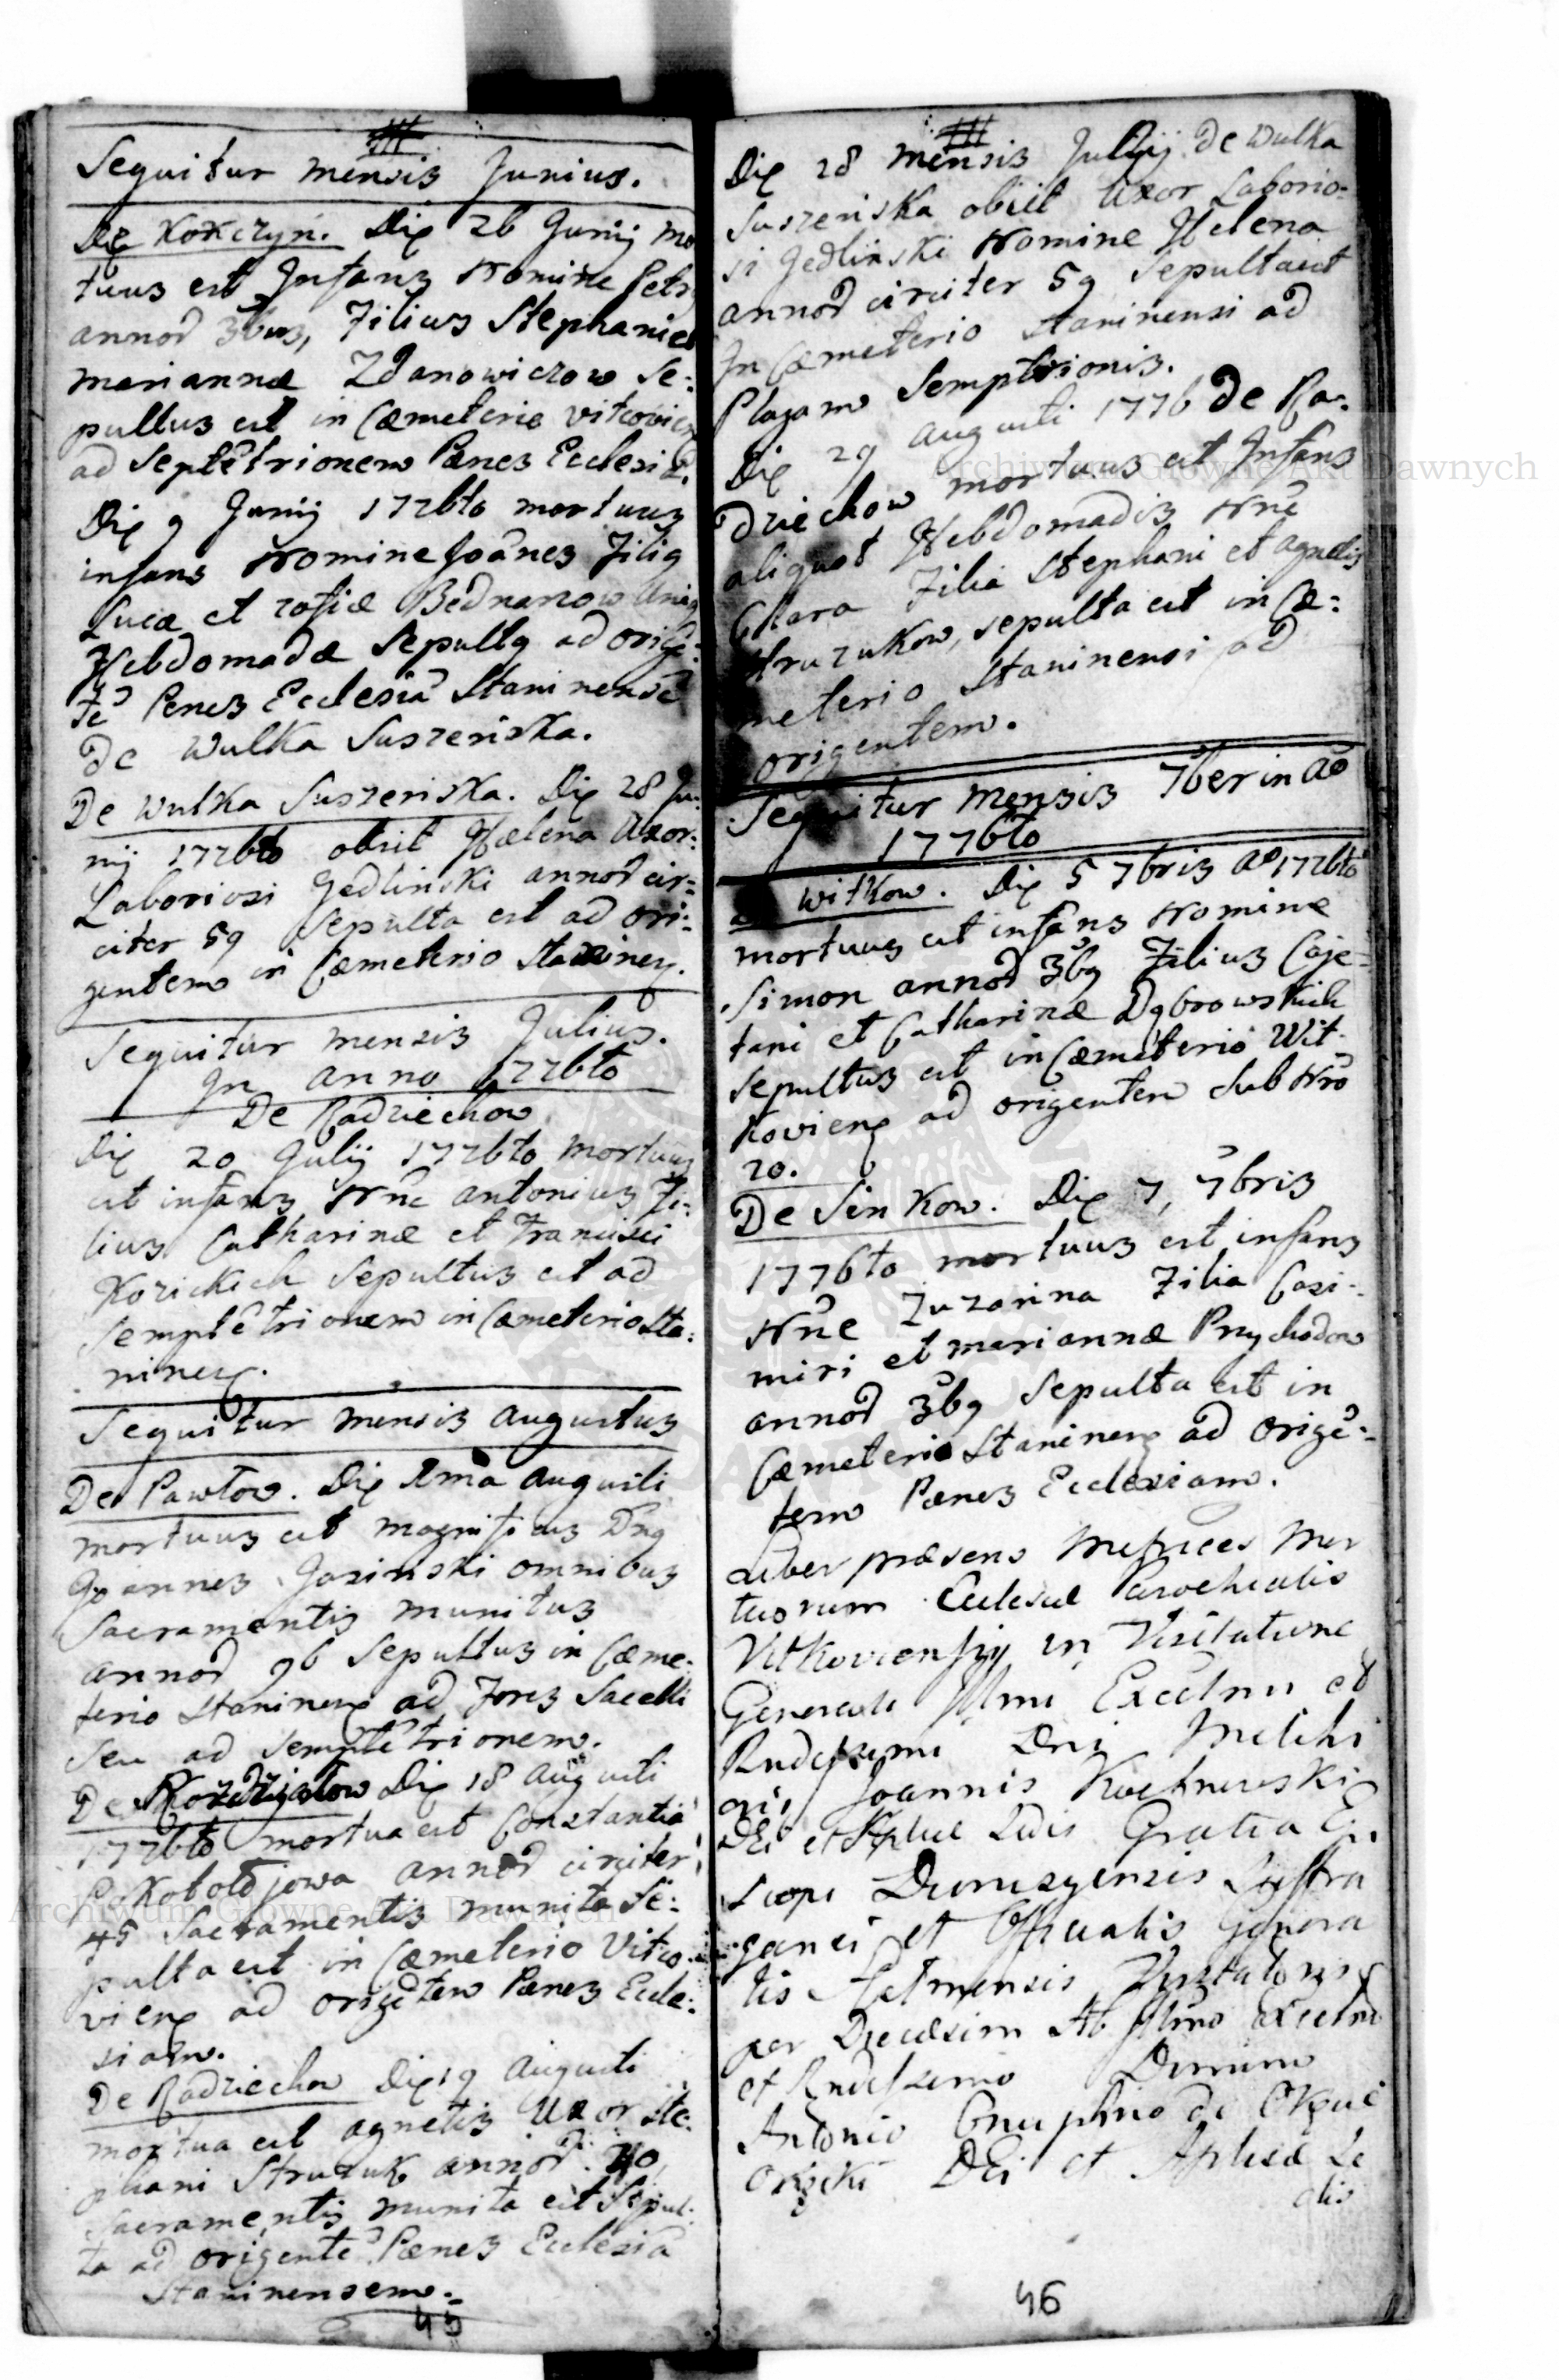 Sequitur mensis Junius.
De Kokczyn. Die 26 Junij mo
tuus est Infans Nomine Petr
annor 3bus, Filius Stephani et
mariannæ Zdanowiczow Se=
pultus est in Cæmeterio vitcovien
ad Septētrionem Pænes Ecclesiā.
Die 9 Junij 1776to mortuus
infans Nomine Joānes Filig
Lucæ et zofiæ Bednarzow Unig
Hebdomadæ Sepultg ad origē=
tē Penes Ecclesiā Staninensē
De Wulka Suszeńska.
De Wulka Suszeńska. Die 28 Ju=
nij 1776to obiit Hælena Uxor
Laboriosi Jedlinski annor cir=
citer 59 Sepulta est ad ori=
gentem in Cæmeterio Staninen.
Sequitur mensis Julius.
In anno 1776to
De Radziechow
Die 20 Julij 1776to Mortuus
est infans Nne antonius Fi=
lius Catharinæ et Francisci
Kozickich Sepultus est ad
Semptētrionem in Cæmeterio Sta=
ninen.
Sequitur mensis augustus
De Pawłow. Die 1ma augusti
mortuus est magnificus Dng
Joannes Jasinski omnibus
Sacramentis munitus
annor 96 Sepultus in Cæme=
terio Staninen ad Fores Sacelli
seu ad Semptētrionem.
De Rożdżiałow Die 18 augusti
1776to mortua est Constantia
Pokołodjowa annor circiter
45 Sacramentis munita Se=
pulta est in Cæmeterio Vitco=
vien ad origētem Pænes Eccle=
siam.
De Radziechow Die 19 augusti
mortua est agnetis Uxor Ste=
phani Struzuk annor. 40,
Sacramentis munita est Sepul=
ta ad origentē Pænes Ecclesiā
Staninensem.
45
Die 28 mensis Julij De Wulka
Suszeńska obiit Uxor Laborio=
si Jedlinski Nomine Helena
annor circiter 59 Sepulta est
In Cæmeterio Staninensi ad
Plagam Semptrionis.
Die 29 augusti 1776 De Ra=
dziechow mortuus est Infans
aliquot Hebdomadis Nnē
Clara Filia Stephani et agnetis
Struzukow, sepulta est in Cæ=
meterio Staninensi ad
origentem.
Sequitur Mensis 7ber in aō
1776to
Witkow. Die 5 7bris Ao 1776to
mortuus est infans Nomine
Simon annor 3bg Filius Caje=
tani et Catharinæ Dąbrowskich
Sepultus est in Cæmeterio Wit=
kovien ad origentem Sub Nro
20.
De Sinkow. Die 7, 7bris
1776to mortuus est infans
Nnē Zuzanna Filia Casi=
miri et mariannæ Przychodow
annor 3bg Sepulta est in
Cæmeterio Staninen ad Origē=
tem Pænes Ecclesiam.
Liber præsens Metrices Mor
tuorum Ecclesiæ Parochialis
Vitkoviensis in Visitatione
Generali Illmi Excelmi et
Rndissimi Dni Melchi
oris Joannis Kochnowski
DEi et Aplicæ Sedis Gratia Epi
scopi Dionisyensis Suffra
ganei et Officialis Genera
lis Chelmensis Visitatoris
per Diæcesim Ab Illmo Excelmo
et Rndissimo Domino
Antonio Onuphrio de Okęcie
Okęcki DEi et Aplicæ Se
dis
46
Archiwum Główne Akt Dawnych
Archiwum Główne Akt Dawnych